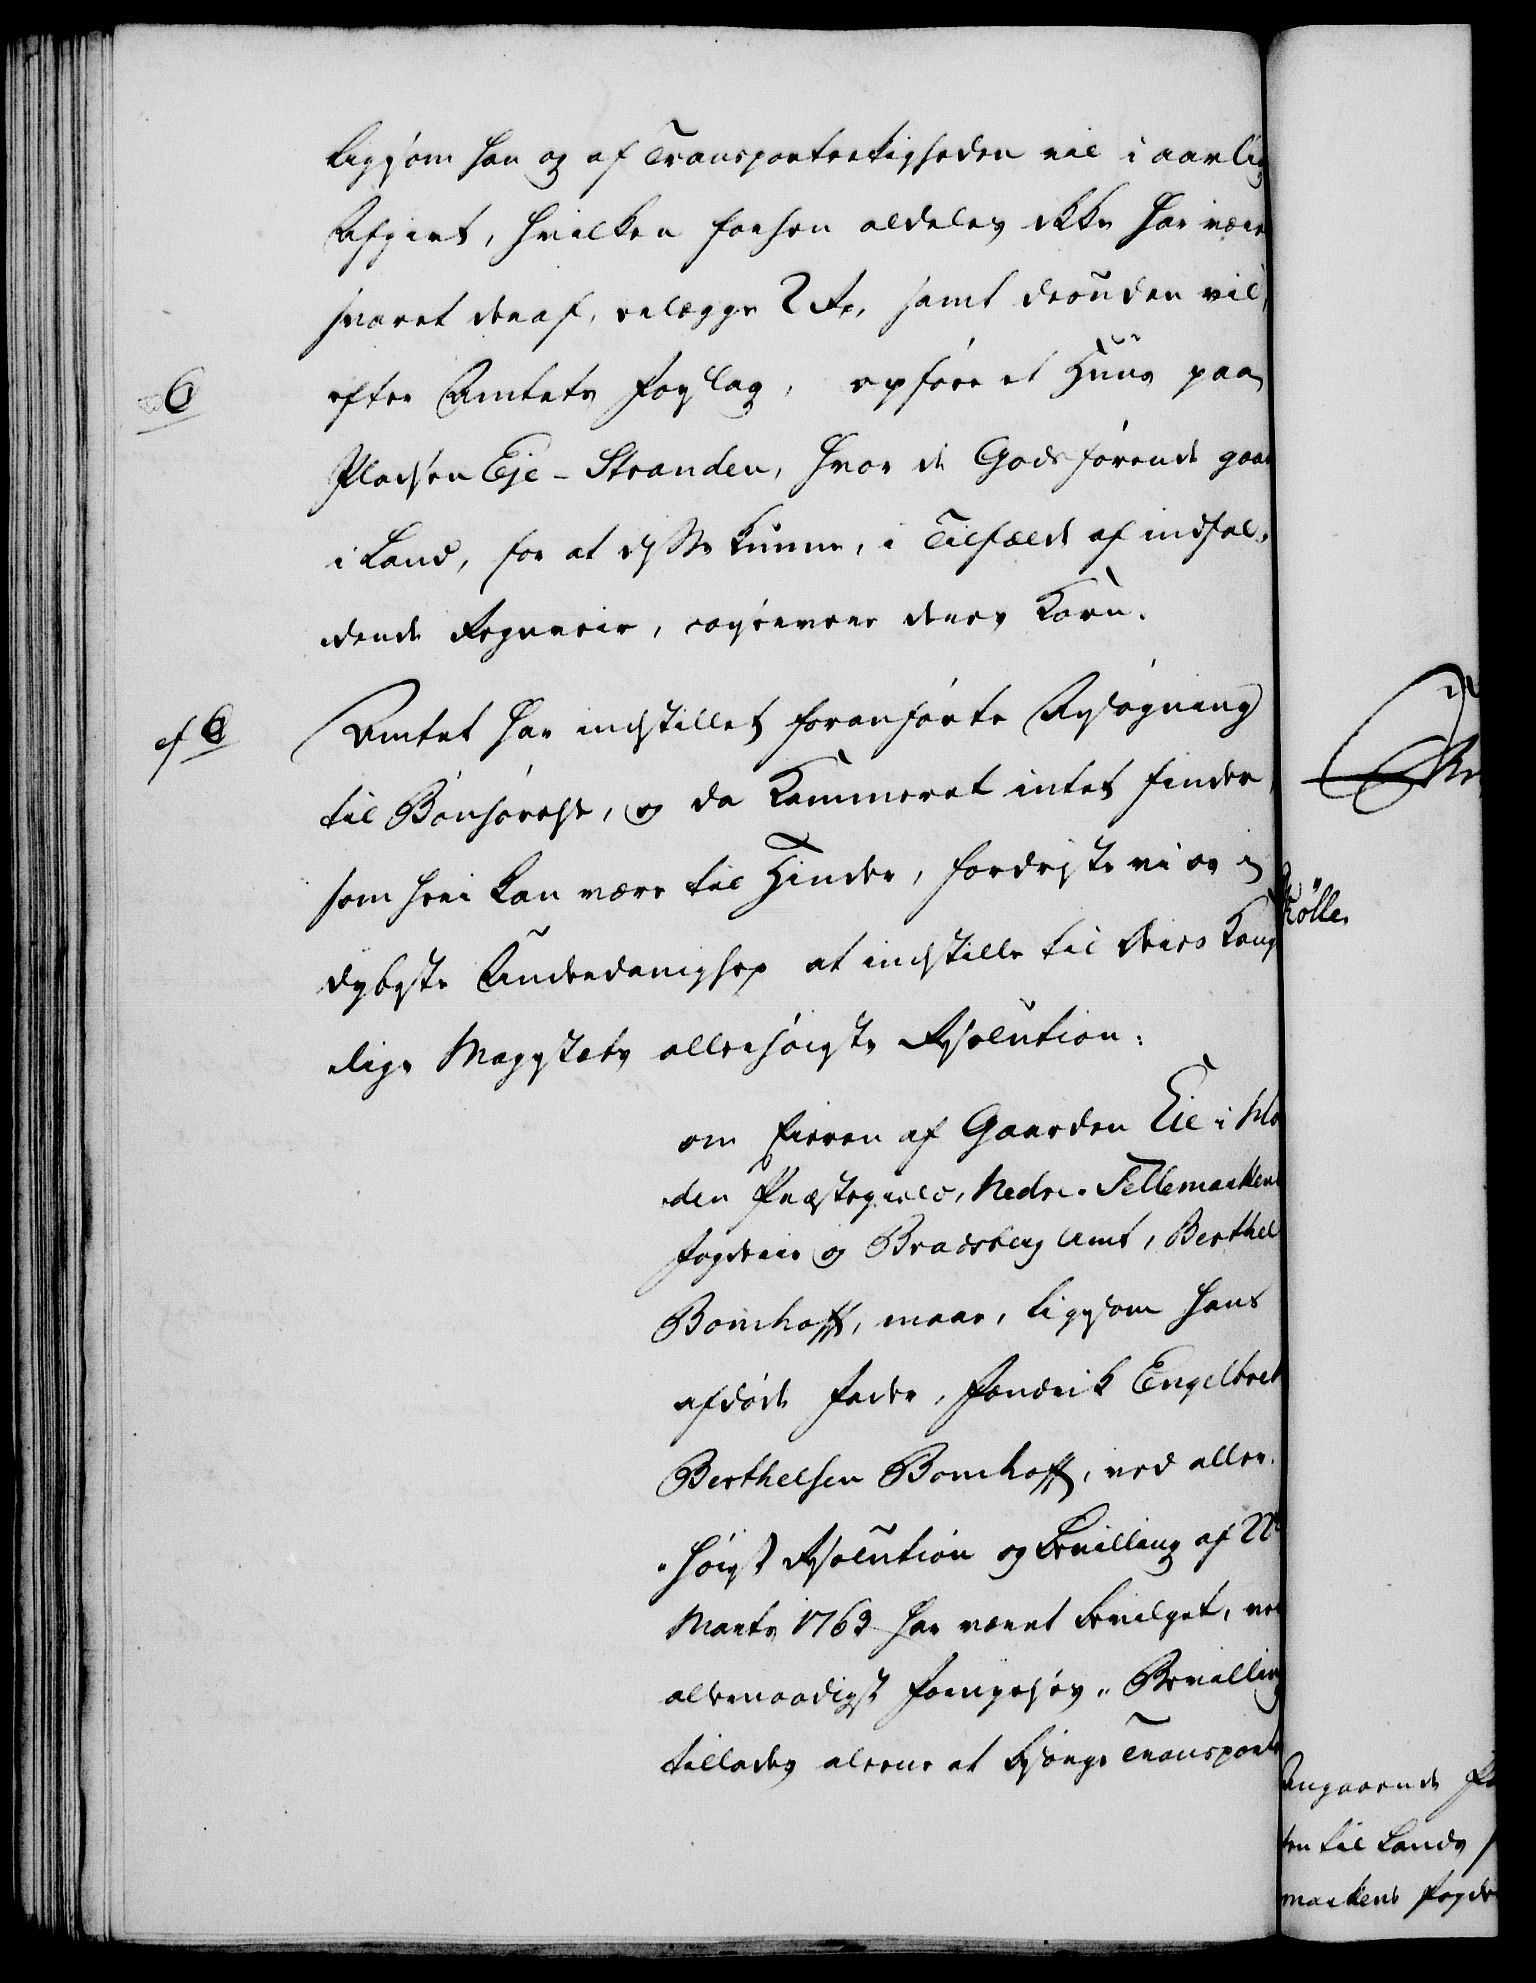 ligesom han og af Transportrettigheden vil i aarlig
Afgivt, hvilken forhen aldeles ikke har været
svaret deraf, erlægge 2 Rd, samt desuden vil,
6
efter Amtets Forslag, opføre et Huus paa
Pladsen Eje-Stranden, hvor de Godsførende gaae
i Land, for at disse kunne, i Tilfælde af indfal-
dende Regnveir, conservere deres Korn.
f 6
Amtet har indstillet foranførte Ansøgning
til Bønhørelse, og da Kammeret intet finder,
som heri kan være til Hinder, fordriste vi os i
dybeste Underdanighed at indstille til Deres Konge-
lige Majestæts allerhøieste Resolution:
om Eieren af Gaarden Eie i
den Præstegield, Nedre-Tellemarkens
Fogderie og Bradsberg Amt, Berthel
Bomhoff, maae, ligesom hans
afdøde Fader, Fændrik Engelbret
Berthelsen Bomhoff, ved aller-
høiest Resolution og Bevilling af 22
Marts 1763 har været bevilget, ved
allernaadigst Fornyelses-Bevilling
tillades alene at besørge Transporten
Kølle.
Angaaende
ten til Lands
markens Fogde